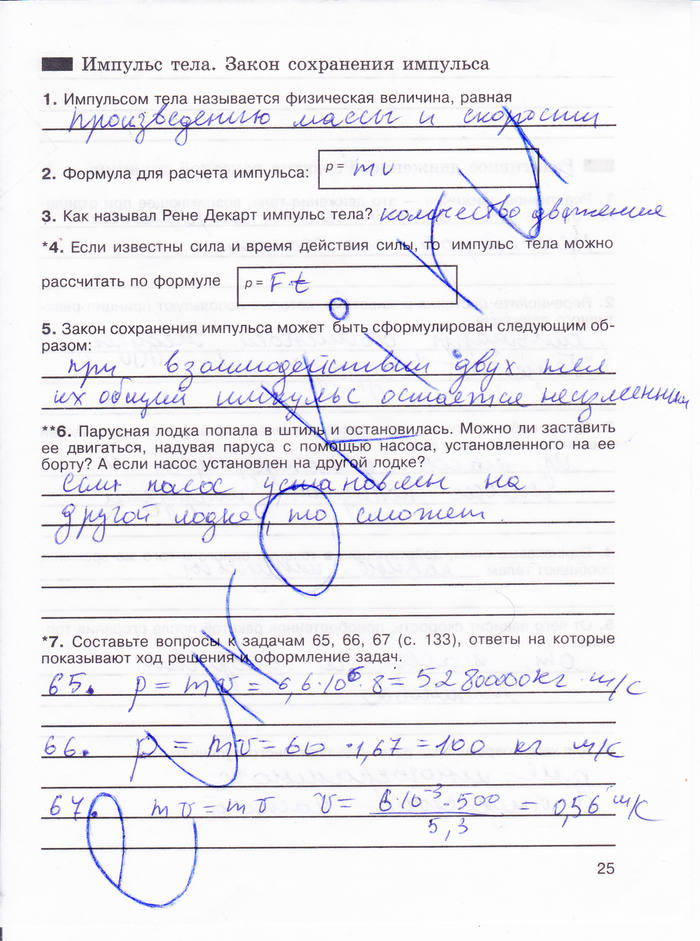 Импульс тела. Закон сохранения импульса
1. Импульсом тела называется физическая величина, равная
произведению массы и скорости
2. Формула для расчета импульса: p = mv
3. Как называл Рене Декарт импульс тела? количество движения
*4. Если известны сила и время действия силы, то импульс тела можно
рассчитать по формуле p = F t
5. Закон сохранения импульса может быть сформулирован следующим об-
разом:
при взаимодействии двух тел
их общий импульс остается неизменным
**6. Парусная лодка попала в штиль и остановилась. Можно ли заставить
ее двигаться, надувая паруса с помощью насоса, установленного на ее
борту? А если насос установлен на другой лодке?
Если насос установлен на
другой лодке, то сможет.
*7. Составьте вопросы к задачам 65, 66, 67 (с. 133), ответы на которые
показывают ход решения и оформление задач.
65. p = mv = 6,6·10⁶·8 = 52800000 кг · м/с
66. p = mv = 60 · 1,67 = 100 кг м/с
67. mv = mv v = 6·10⁻³·500 / 5,3 = 0,56 м/с
25